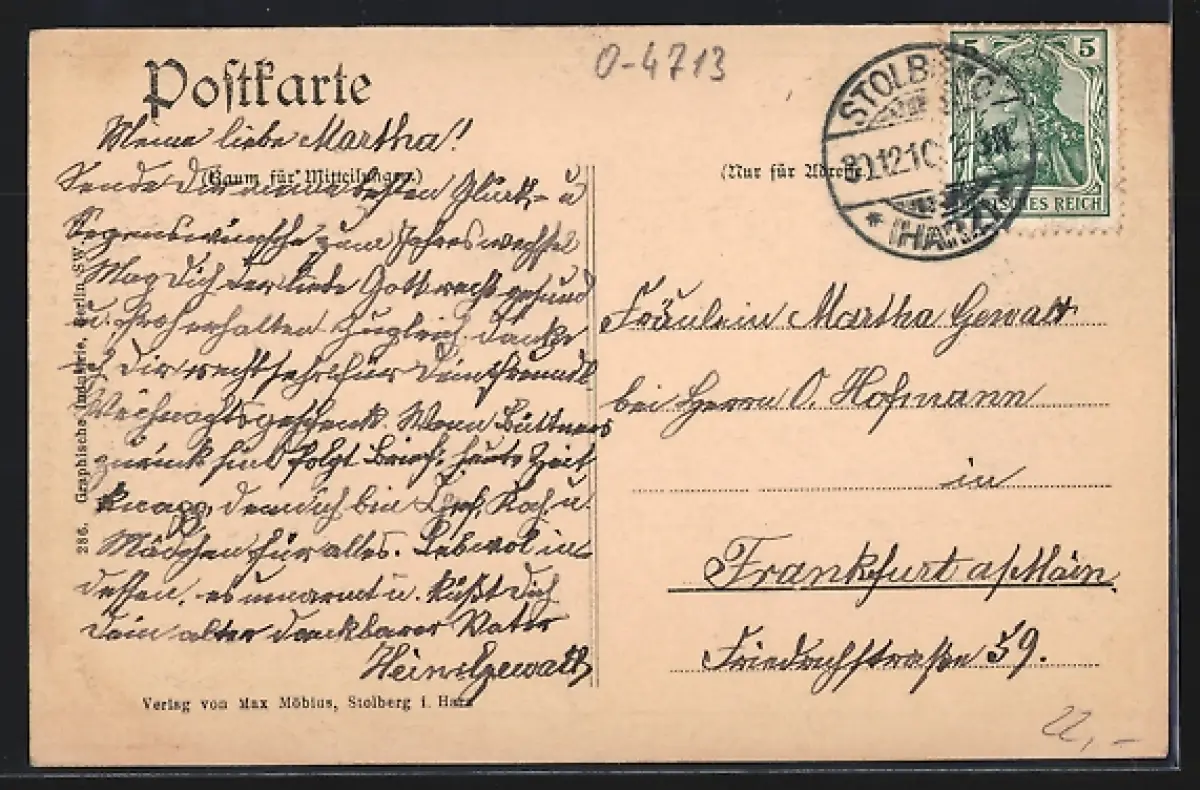 Postkarte
O-4713
Meine liebe Martha!
(Raum für Mitteilungen.)
Sende Dir meine besten Glück- u
Segenswünsche zum Jahreswechsel
Mag Dich der liebe Gott recht gesund
u. froh erhalten Zugleich danke
ich Dir recht sehr für Dein freundl.
Weihnachtsgeschenk. Wenn Büttners
zurück sind folgt Brief, heute Zeit
knapp, denn ich bin Chef, Koch u.
Mädchen für alles. Lebwol in
dessen, es umarmt u. küßt Dich
Dein alter dankbarer Vater
Heinr. Gewalt
Verlag von Max Möbius, Stolberg i. Harz
286. Graphische Industrie, Berlin SW.
(Nur für Adresse)
STOLBERG
30.12.10
* (HARZ)
5 5
DEUTSCHES REICH
Fräulein Martha Gewalt
bei Herrn O. Hofmann
in
Frankfurt a/Main
Friedrichstraße 59.
22,-